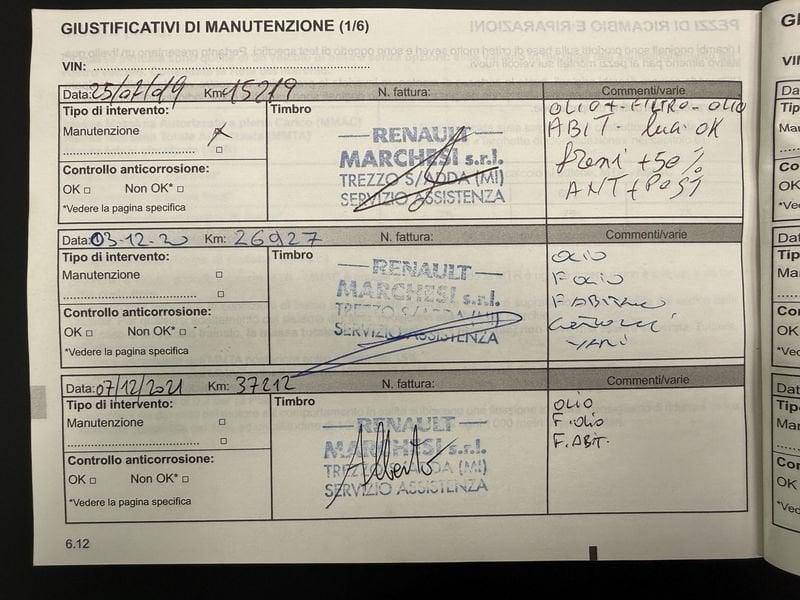 GIUSTIFICATIVI DI MANUTENZIONE (1/6)
VIN:
Data: 25/07/19 Km: 15219 N. fattura: Commenti/varie
Tipo di intervento: Timbro OLIO + FILTRO OLIO
Manutenzione X ABIT. luci OK
RENAULT freni +50%
MARCHESI s.r.l. ANT + POST
TREZZO S/ADDA (MI)
SERVIZIO ASSISTENZA
Controllo anticorrosione:
OK Non OK*
*Vedere la pagina specifica
Data: 03-12-20 Km: 26927 N. fattura: Commenti/varie
Tipo di intervento: Timbro OLIO
Manutenzione F OLIO
RENAULT
MARCHESI s.r.l.
TREZZO S/ADDA (MI)
SERVIZIO ASSISTENZA
VARI
Controllo anticorrosione:
OK Non OK*
*Vedere la pagina specifica
Data: 07/12/2021 Km: 37212 N. fattura: Commenti/varie
Tipo di intervento: Timbro OLIO
Manutenzione F. OLIO
F. ABIT.
RENAULT
MARCHESI s.r.l.
TREZZO S/ADDA (MI)
SERVIZIO ASSISTENZA
Alberto
Controllo anticorrosione:
OK Non OK*
*Vedere la pagina specifica
6.12